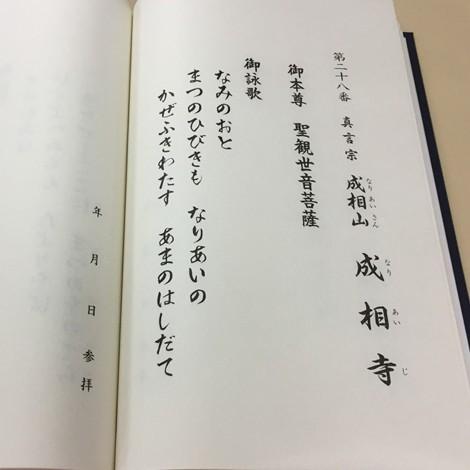 第二十八番 真言宗 成相山 成相寺
なりあいさん なりあいじ
御本尊 聖観世音菩薩
御詠歌
なみのおと
まつのひびきも なりあいの
かぜふきわたす あまのはしだて
年 月 日 参拝